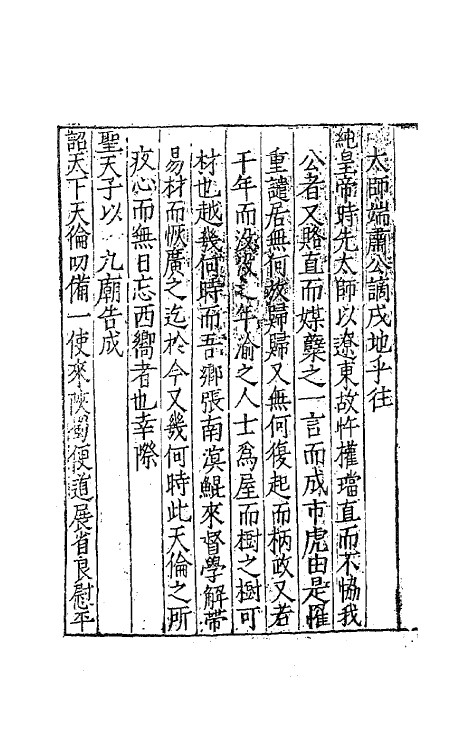 太師端肅公謫戍地乎往
純皇帝時先太師以遼東故忤權璫直而不恊我
公者又賂直而媒糵之一言而成市虎由是罹
重譴居無何放歸歸又無何復起而柄政又若
千年而沒沒之年渝之人士為屋而樹之樹可
材也越幾何時而吾鄉張南溟鯤來督學解帶
易材而恢廣之迄於今又幾何時此天倫之所
疚心而無日忘西嚮者也幸際
聖天子以 九廟告成
詔天下天倫叨備一使來陝蜀便道展省良慰平